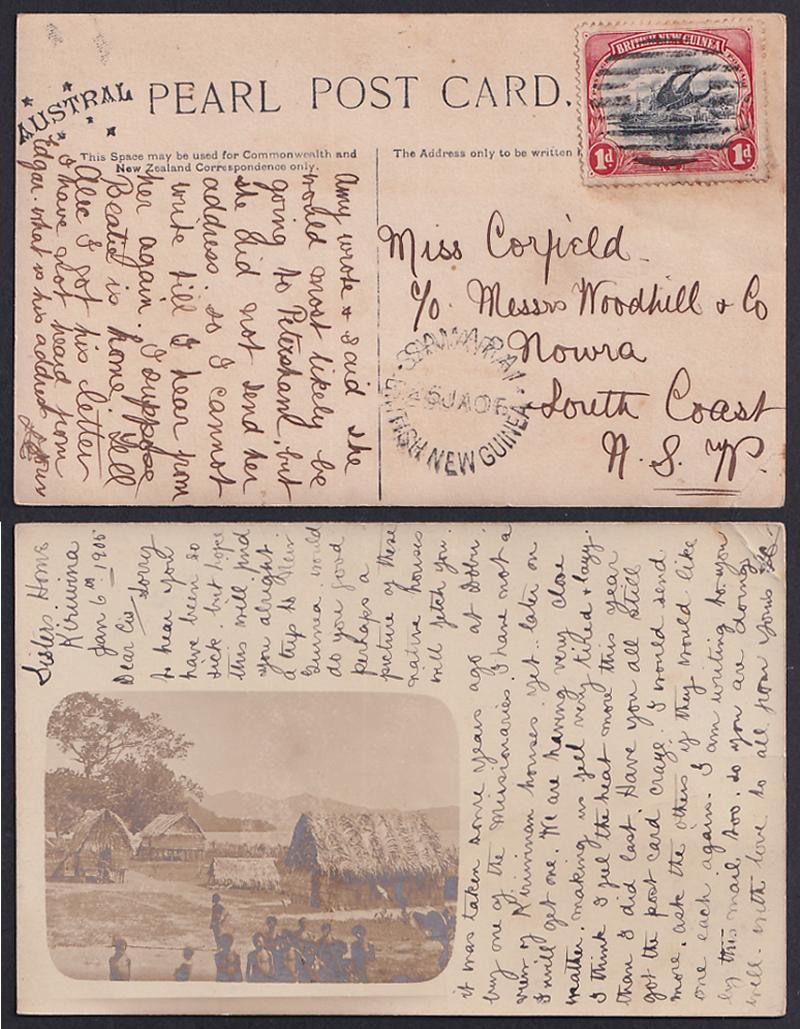 AUSTRAL PEARL POST CARD.
BRITISH NEW GUINEA
1d 1d
This Space may be used for Commonwealth and
New Zealand Correspondence only.
The Address only to be written
Miss Corfield
c/o. Messrs Woodhill & Co
Nowra
South Coast
N. S. W.
SAMARAI
JA 05
BRITISH NEW GUINEA
Amy wrote & said she
would most likely be
going to Petersham, but
she did not send her
address. so I cannot
write till I hear from
her again. I suppose
Beatie is home. Tell
Alec I got his letter
& I have not heard from
Edgar. what is his address
Sisters Home
Kiriwina
Jan 6th 1905
Dear Cis Sorry
to hear you
have been so
sick but hope
this will find
you alright
a trip to New
Guinea would
do you good
perhaps a
picture of these
native houses
will fetch you.
it was taken some years ago at Dobu.
by one of the Missionaries. I have not a
view of Kiriwinan houses yet. later on
I will get one. We are having very close
weather. making us feel very tired & lazy.
I think I feel the heat more this year
than I did last. Have you all still
got the post card craze. I would send
more. ask the others if they would like
one each again. I am writing to you
by this mail too. so you are doing
well. with love to all from yours